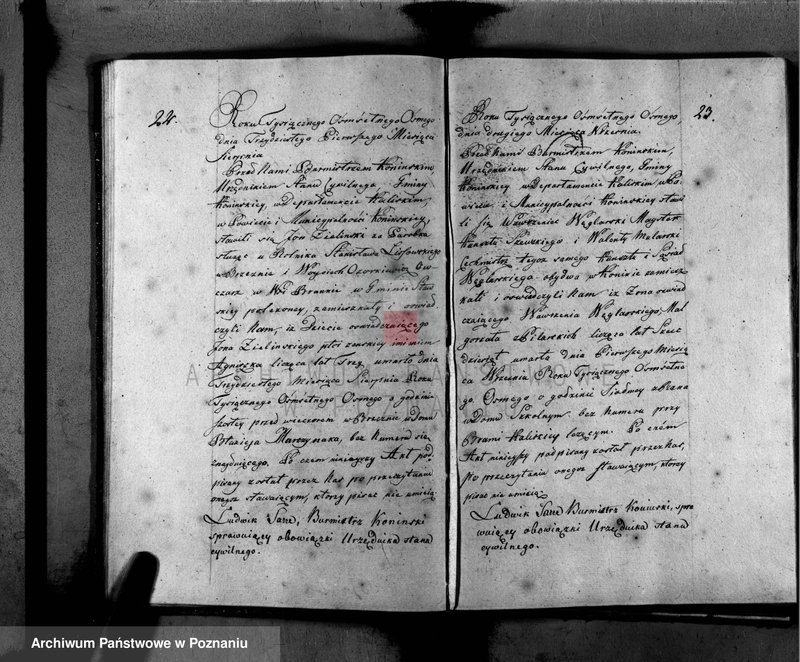 22.
Roku Tysiącznego Osmsetnego Osmego
dnia Trzydziestego Pierwszego Miesiąca
Sierpnia
Przed Nami Burmistrzem Konińskim,
Urzędnikiem Stanu Cywilnego, Gminy
Konińskiey, w Departamencie Kaliskim,
w Powiecie i Municypalności Konińskiey,
stawili się Jan Zieliński za Parobka
służąc u Rolnika Stanisława
w Brzeznie i Woyciech Ow-
czarz w Wsi w Gminie
skiey położoney, zamieszkały i oświad-
czyli Nam, iż Dziecie oswiadczaiącego
Jana Zielinskiego płci żenskiey imieniem
Agnieszka licząca lat Trzy umarło dnia
Trzydziestego Miesiąca Sierpnia Roku
Tysiącznego Osmsetnego Osmego o godzinie
szostey przed wieczorem w Brzeznie w Domu
Marczynaka, bez Numeru się
znayduiącego. Po czem ninieyszy Akt pod-
pisany został przez Nas po przeczytaniu
onegoż stawaiącym, ktorzy pisać nie umieią
Ludwik Sane, Burmistrz Koninski
sprawuiący obowiązki Urzędnika stanu
cywilnego.
23.
Roku Tysiącznego Osmsetnego Osmego,
dnia drugiego Miesiąca Wrzesnia.
Przed Nami Burmistrzem Konińskim,
Urzędnikiem Stanu Cywilnego, Gminy
Konińskiey w Departamencie Kaliskim, w Po-
wiecie i Municypalności Konińskiey stawi-
li się Wawrzeniec Węglarski Magister
Kunsztu Szewskiego i Walenty Malarski
Cechmistrz tegoż samego Kunsztu i Sąsiad
Węglarskiego obydwa w Koninie zamiesz-
kali i oswiedczyli Nam iż Żona oswiad-
czaiącego Wawrzenca Węglarskiego, Mał-
gorzata z Pilarskich licząca lat Szesc
dziesiąt umarła dnia Pierwszego Miesią-
ca Wrzesnia Roku Tysiącznego Osmsetne-
go Osmego o godzinie Siodmey z Rana
w Domu Szkolnym bez Numeru przy
Bramie Kaliskiey leżącym. Po czém
Akt ninieyszy podpisany został przez Nas,
po przeczytaniu onegoż stawaiącym, ktorzy
pisać nie umieią
Ludwik Sane Burmistrz Koninski, spra-
wuiący obowiązki Urzędnika stanu
cywilnego.
Archiwum Państwowe w Poznaniu